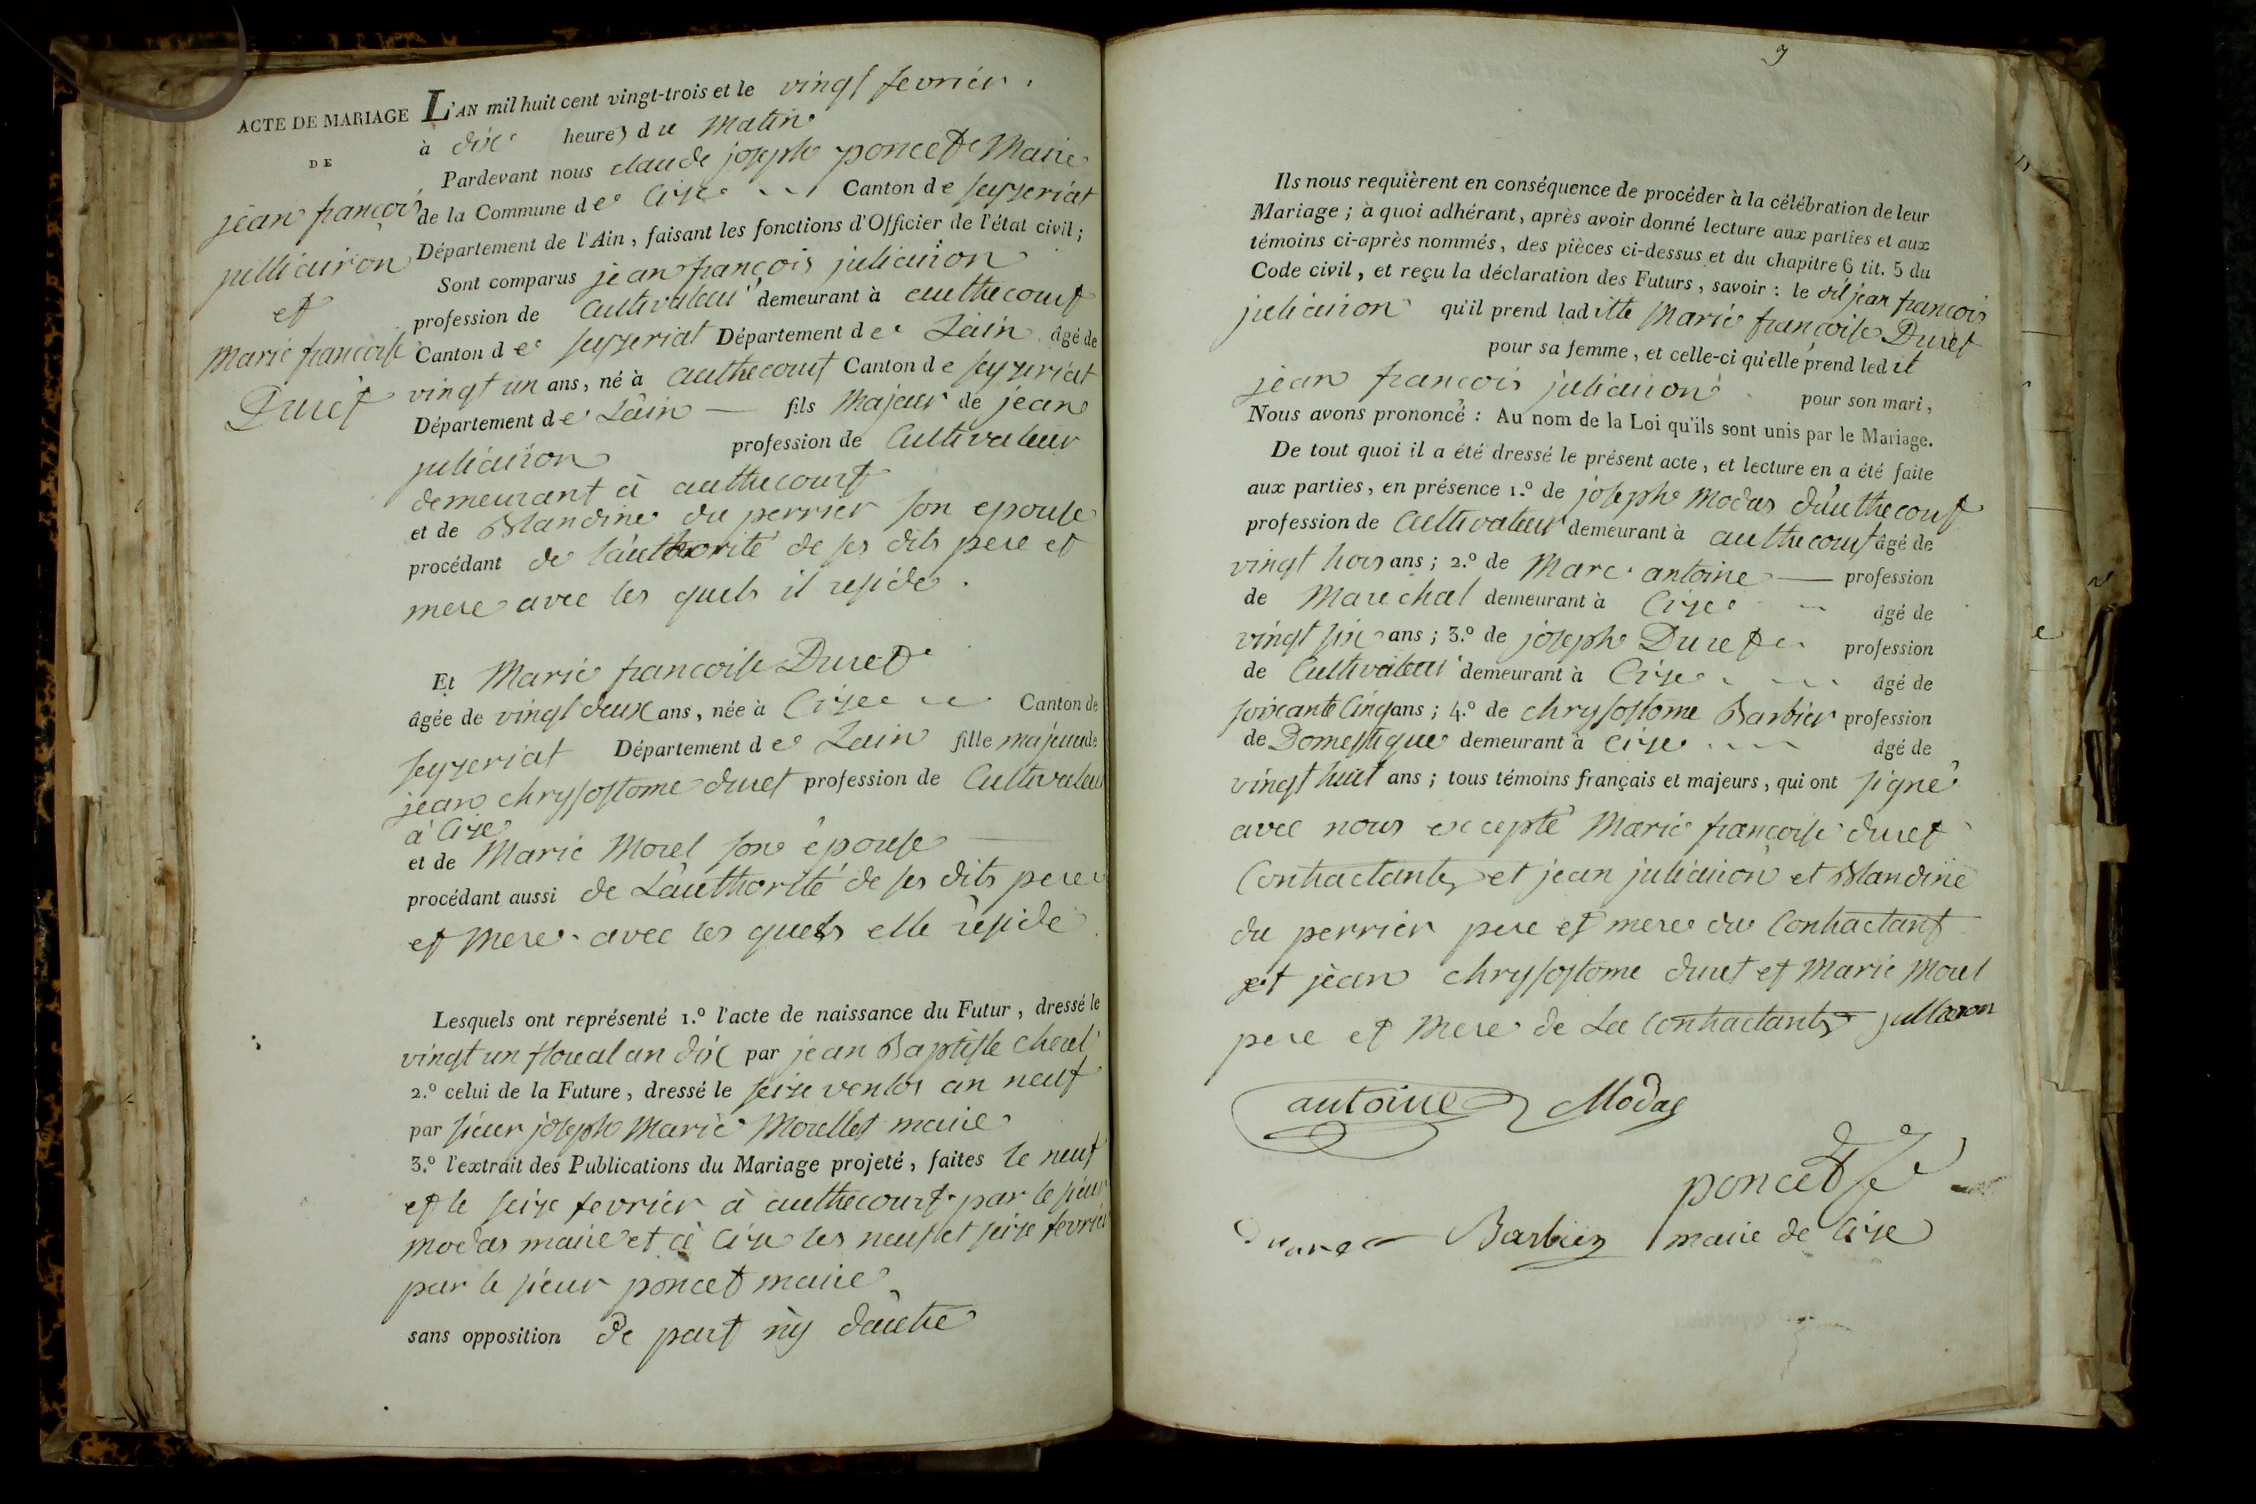 ACTE DE MARIAGE
DE
jean françois
julliairon
et
marie françoise
Duret
L'AN mil huit cent vingt-trois et le vingt fevrier
à dix heures du matin
Pardevant nous claude joseph poncet Maire
de la Commune de Cize Canton de seyzeriat
Département de l'Ain, faisant les fonctions d'Officier de l'état civil;
Sont comparus jean françois juliairon
profession de Cultivateur demeurant à authecourt
Canton de seyzeriat Département de Lain âgé de
vingt un ans, né à authecourt Canton de seyzeriat
Département de Lain fils majeur de jean
juliairon profession de Cultivateur
demeurant à authecourt
et de Blandine du perrier son epouse
procédant de lauthorité de ses dits pere et
mere avec les quels il reside.
Et Marie françoise Duret
âgée de vingt deux ans, née à Cize Canton de
seyzeriat Département de Lain fille majeure de
jean chrysostome duret profession de Cultivateur
à Cize
et de Marie Morel son épouse
procédant aussi de Lauthorité de ses dits pere
et mere avec les quels elle réside
Lesquels ont représenté 1.º l'acte de naissance du Futur, dressé le
vingt un floreal an dix par jean Baptiste
2.º celui de la Future, dressé le seize ventos an neuf
par sieur joseph Marie Morellet maire
3.º l'extrait des Publications du Mariage projeté, faites le neuf
et le seize fevrier à authecourt par le sieur
modas maire et à Cize les neuf et seize fevrier
par le sieur poncet maire
sans opposition de part ny dautre
9
Ils nous requièrent en conséquence de procéder à la célébration de leur
Mariage; à quoi adhérant, après avoir donné lecture aux parties et aux
témoins ci-après nommés, des pièces ci-dessus et du chapitre 6 tit. 5 du
Code civil, et reçu la déclaration des Futurs, savoir: le dit jean françois
juliairon qu'il prend laditte Marie françoise Duret
pour sa femme, et celle-ci qu'elle prend ledit
jean françois juliairon pour son mari,
Nous avons prononcé: Au nom de la Loi qu'ils sont unis par le Mariage.
De tout quoi il a été dressé le présent acte, et lecture en a été faite
aux parties, en présence 1.º de joseph Modas dauthecourt
profession de Cultivateur demeurant à authecourt âgé de
vingt trois ans; 2.º de Marc antoine profession
de Marechal demeurant à Cize âgé de
vingt six ans; 3.º de joseph Duret profession
de Cultivateur demeurant à Cize âgé de
soixante Cinq ans; 4.º de chrysostome Barbier profession
de Domestique demeurant à Cize âgé de
vingt huit ans; tous témoins français et majeurs, qui ont signé
avec nous excepté Marie françoise duret
Contractante et jean juliairon et Blandine
du perrier pere et mere du Contractant
et jean chrysostome duret et Marie Morel
pere et mere de La Contractante
antoine Modas
poncet
Barbier maire de Cize